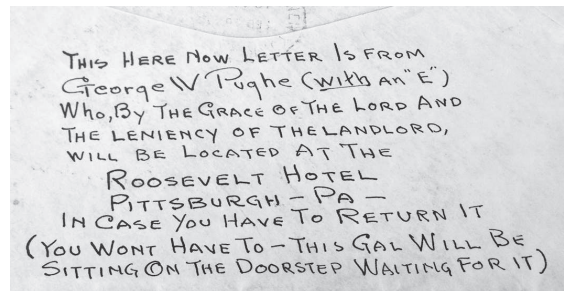 This Here Now Letter Is From
George W Pughe (with An "E")
Who, By The Grace Of The Lord And
The Leniency Of The Landlord,
Will Be Located At The
Roosevelt Hotel
Pittsburgh – Pa –
In Case You Have To Return It
(You Wont Have To – This Gal Will Be
Sitting On The Doorstep Waiting For It)